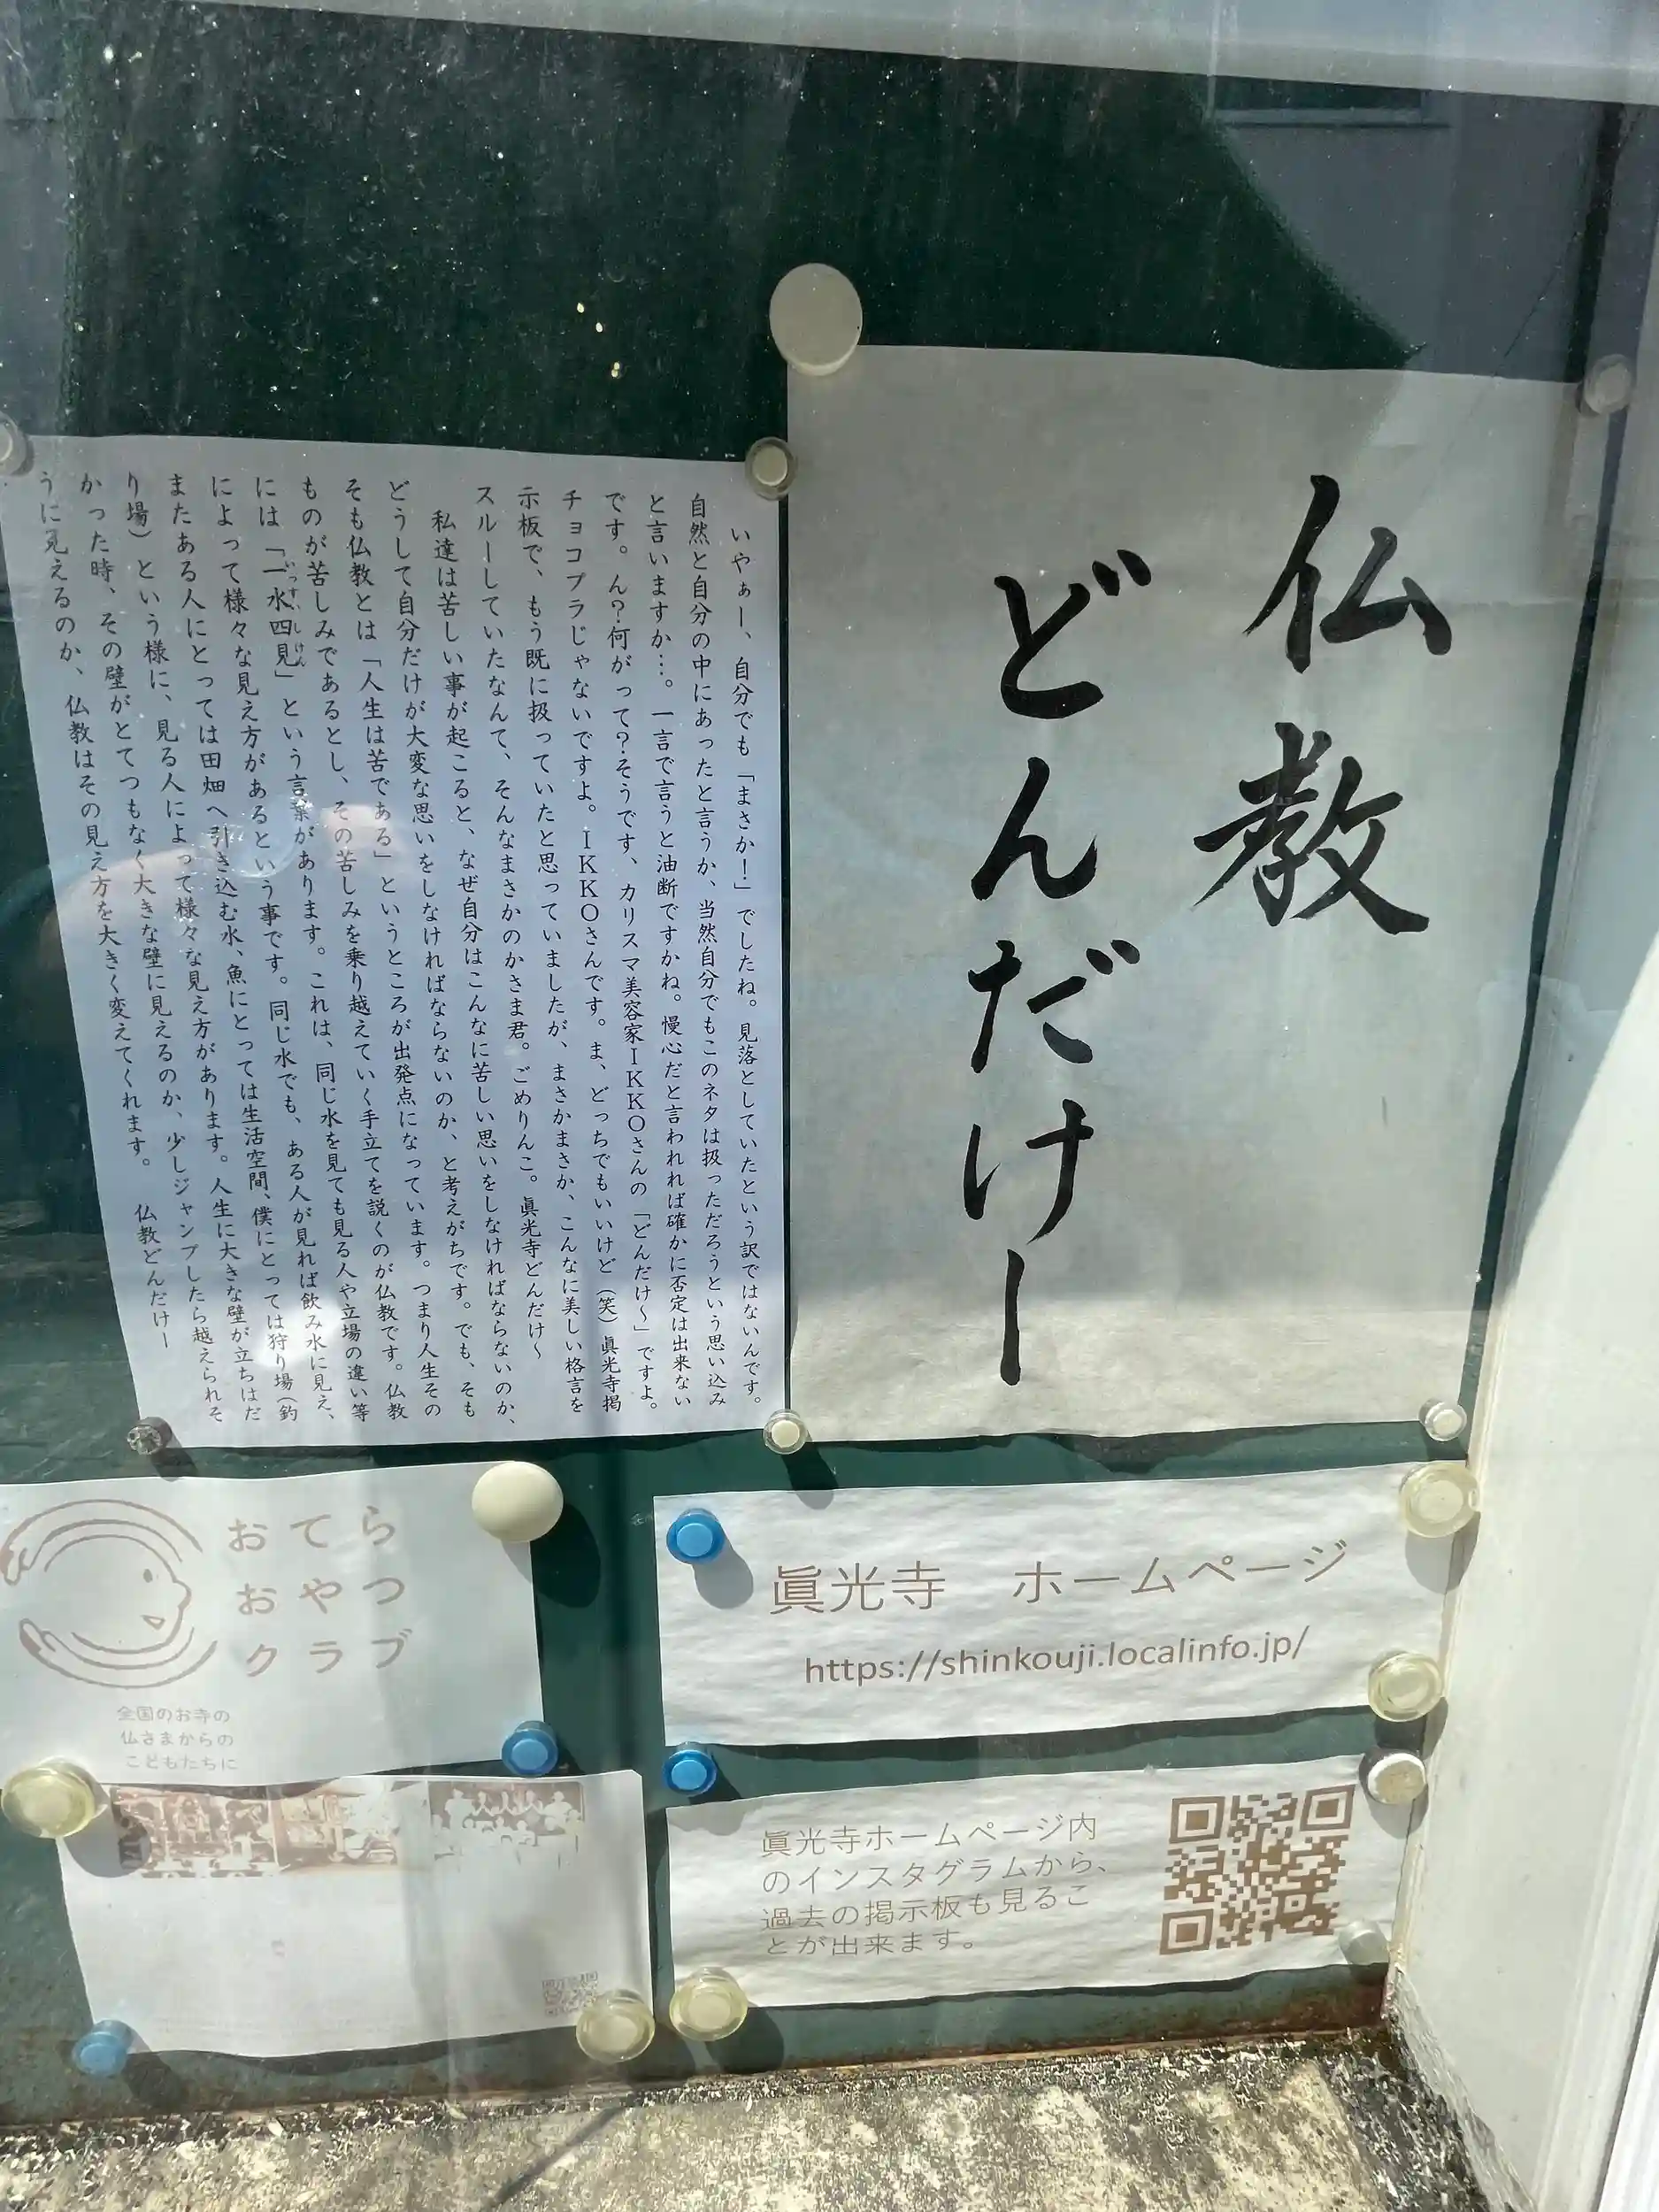 仏教
どんだけー
いやぁー、自分でも「まさか！」でしたね。見落としていたという訳ではないんです。
自然と自分の中にあったと言うか、当然自分でもこのネタは扱っただろうという思い込み
と言いますか…。一言で言うと油断ですかね。慢心だと言われれば確かに否定は出来ない
です。ん？何がって？そうです、カリスマ美容家ＩＫＫＯさんの「どんだけ〜」ですよ。
チョコプラじゃないですよ。ＩＫＫＯさんです。ま、どっちでもいいけど（笑）眞光寺掲
示板で、もう既に扱っていたと思っていましたが、まさかまさか、こんなに美しい格言を
スルーしていたなんて、そんなまさかのかさま君。ごめりんこ。眞光寺どんだけ〜
私達は苦しい事が起こると、なぜ自分はこんなに苦しい思いをしなければならないのか、
どうして自分だけが大変な思いをしなければならないのか、と考えがちです。でも、そも
そも仏教とは「人生は苦である」というところが出発点になっています。つまり人生その
ものが苦しみであるとし、その苦しみを乗り越えていく手立てを説くのが仏教です。仏教
には「一水四見」という言葉があります。これは、同じ水を見ても見る人や立場の違い等
によって様々な見え方があるという事です。同じ水でも、ある人が見れば飲み水に見え、
またある人にとっては田畑へ引き込む水、魚にとっては生活空間、僕にとっては狩り場（釣
り場）という様に、見る人によって様々な見え方があります。人生に大きな壁が立ちはだ
かった時、その壁がとてつもなく大きな壁に見えるのか、少しジャンプしたら越えられそ
うに見えるのか、仏教はその見え方を大きく変えてくれます。　仏教どんだけー
おてら
おやつ
クラブ
全国のお寺の
仏さまからの
こどもたちに
眞光寺　ホームページ
https://shinkouji.localinfo.jp/
眞光寺ホームページ内
のインスタグラムから、
過去の掲示板も見るこ
とが出来ます。